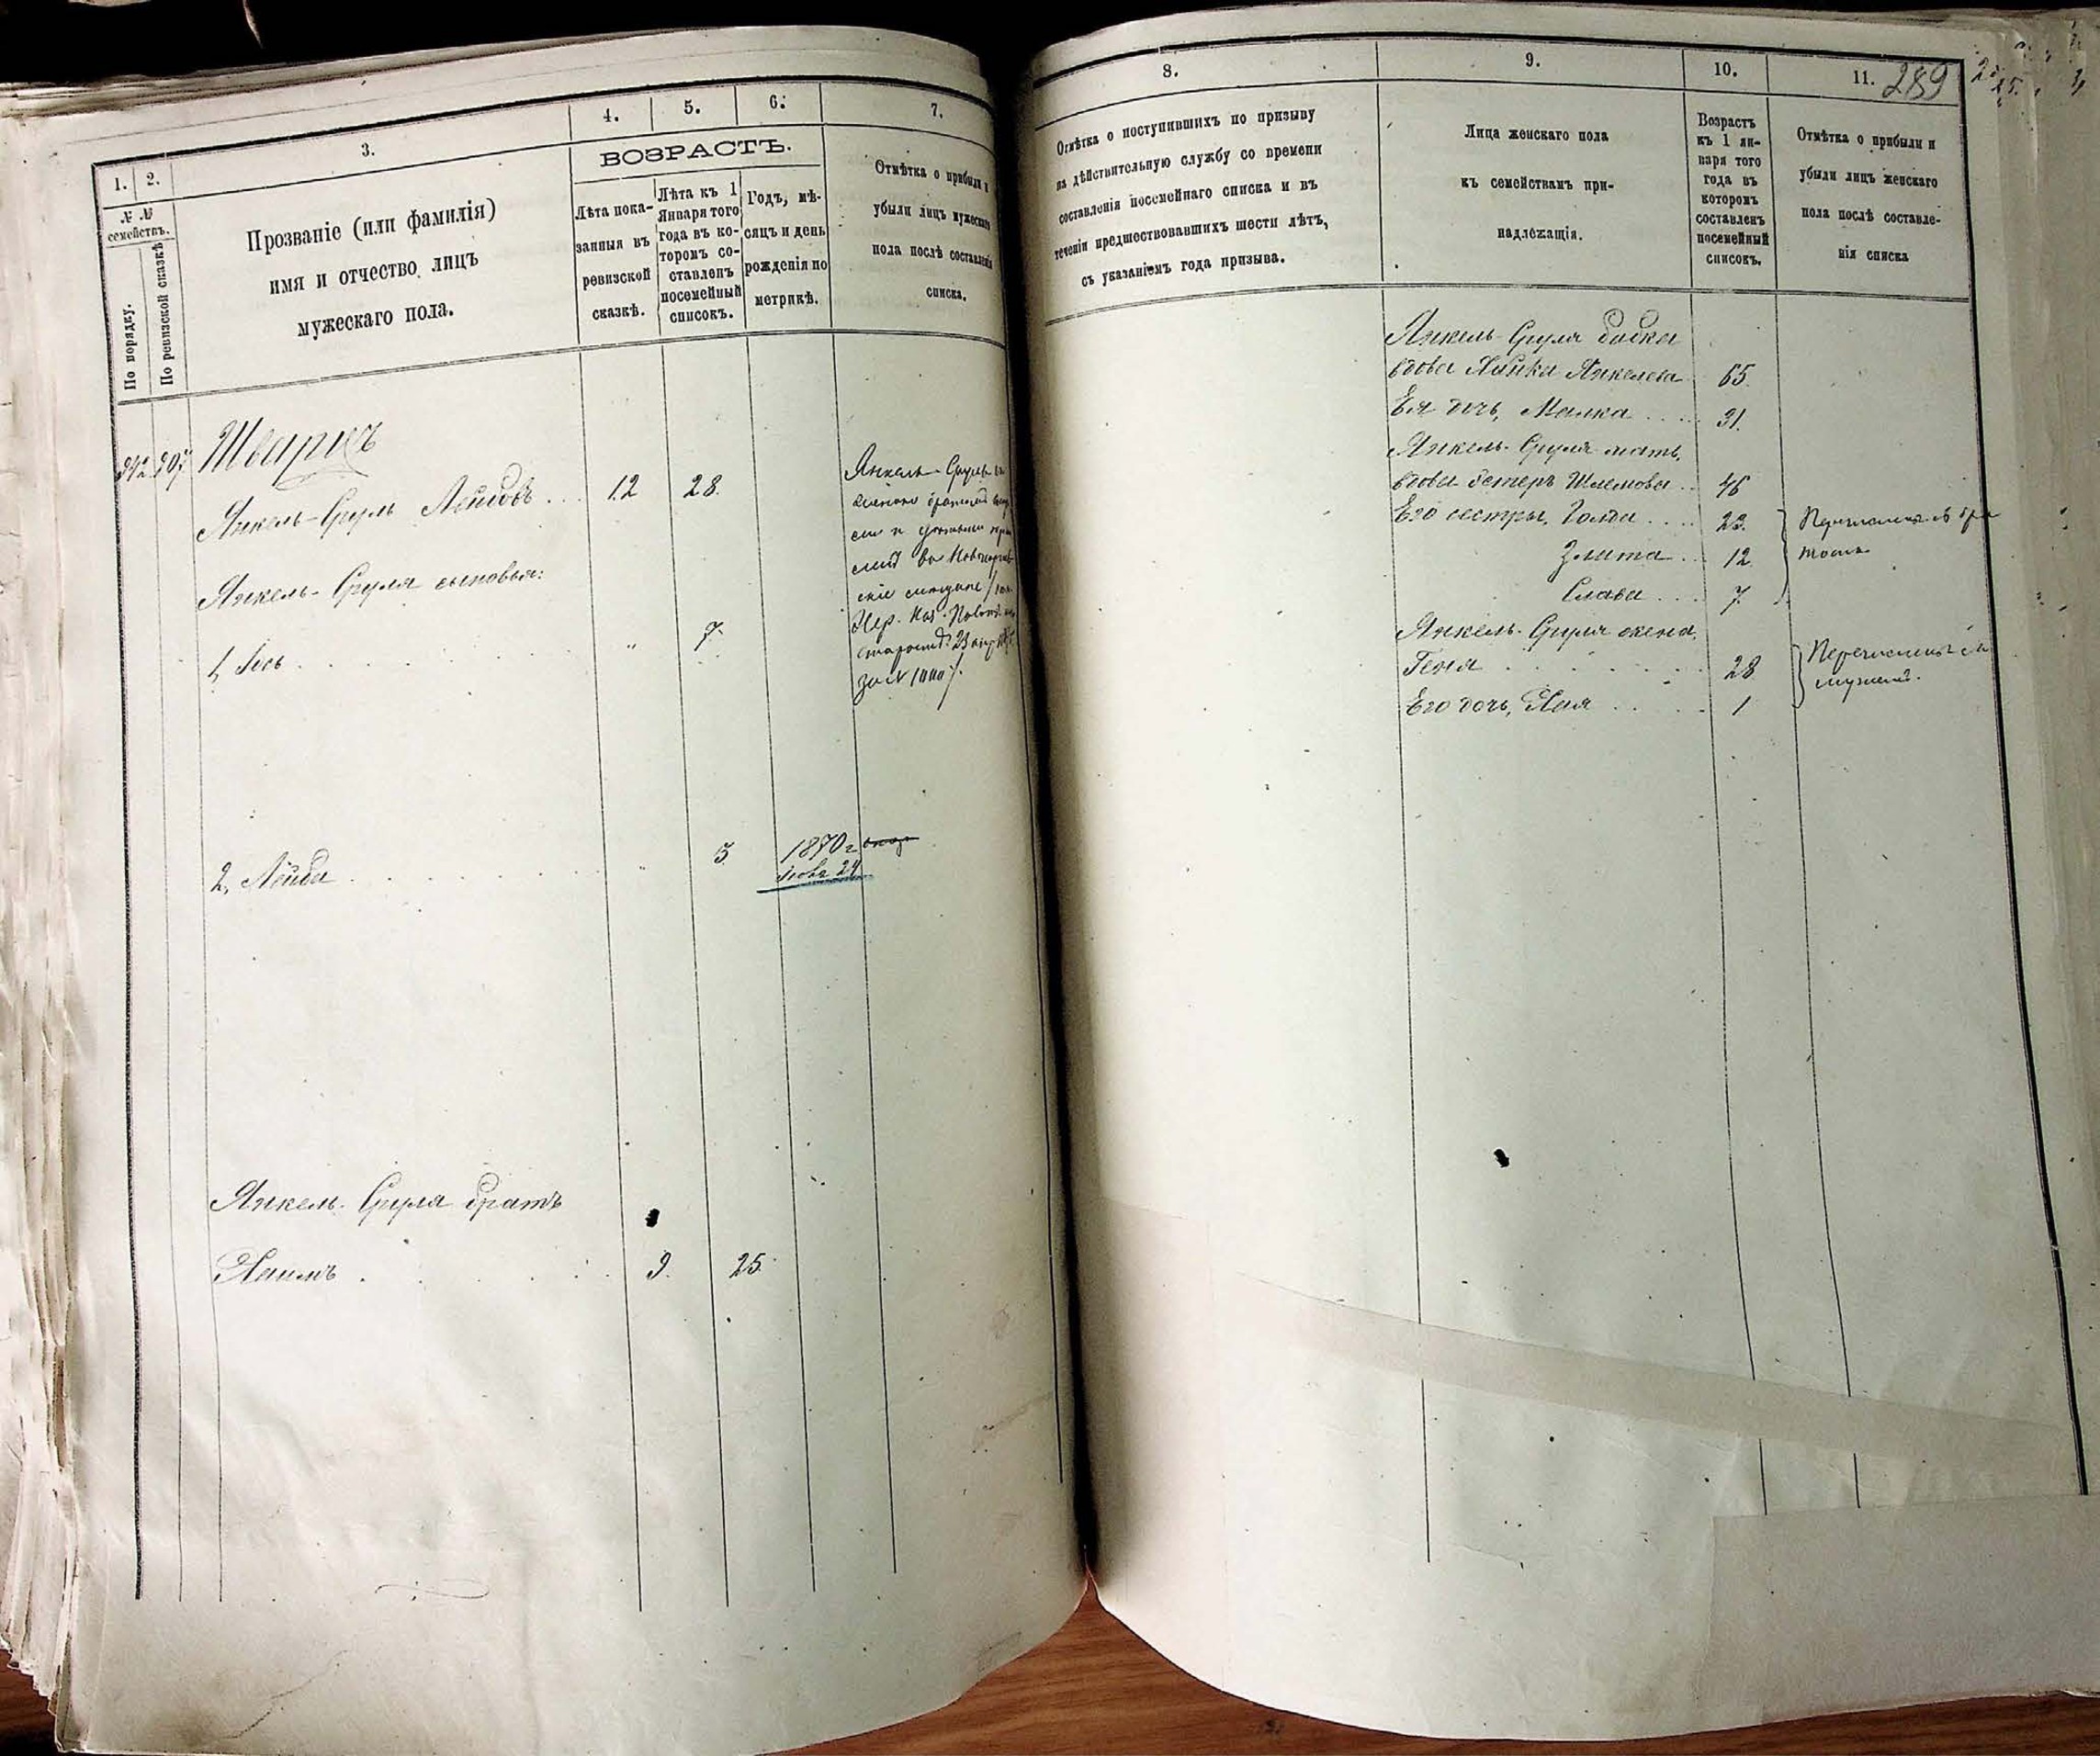 1.
2.
3.
4.
5.
6.
7.
№ №
семействъ.
По порядку.
По ревизской сказкѣ
Прозваніе (или фамилія)
имя и отчество лицъ
мужескаго пола.
ВОЗРАСТЪ.
Лѣта пока-
занныя въ
ревизской
сказкѣ.
Лѣта къ 1
Января того
года въ ко-
торомъ со-
ставленъ
посемейный
списокъ.
Годъ, мѣ-
сяцъ и день
рожденія по
метрикѣ.
Отмѣтка о прибыли и
убыли лицъ мужескаго
пола послѣ составленія
списка.
342 307
Шварцъ
Янкель-Сруль Лейбовъ . . . 12 28.
Янкель-Сруля сыновья:
1, Іось . . . . . . . " 7.
Янкель-Сруль
братомъ
въ
за №
2, Лейба . . . . . . . " 5 1870 г
Нояб 24
Янкель-Сруля братъ
Хаимъ . . . . . 9. 25.
8.
9.
10.
11. 289
Отмѣтка о поступившихъ по призыву
на дѣйствительную службу со времени
составленія посемейнаго списка и въ
теченіи предшествовавшихъ шести лѣтъ,
съ указаніемъ года призыва.
Лица женскаго пола
къ семействамъ при-
надлежащія.
Возрастъ
къ 1 ян-
варя того
года въ
которомъ
составленъ
посемейный
списокъ.
Отмѣтка о прибыли и
убыли лицъ женскаго
пола послѣ составле-
нія списка
Янкель-Сруля бабка
вдова Янкелева 65.
Ея дочь, Малка . . . . 31.
Янкель-Сруля мать,
вдова Эстеръ Шлемова . . 46
Его сестры, Голда . . . . 23. Перечислены съ бра
Злата . . 12. томъ
Слава . . . 7.
Янкель-Сруля жена,
Геня . . . . . . . 28 Перечислены съ
мужемъ.
Его дочь, Хая . . . . . 1